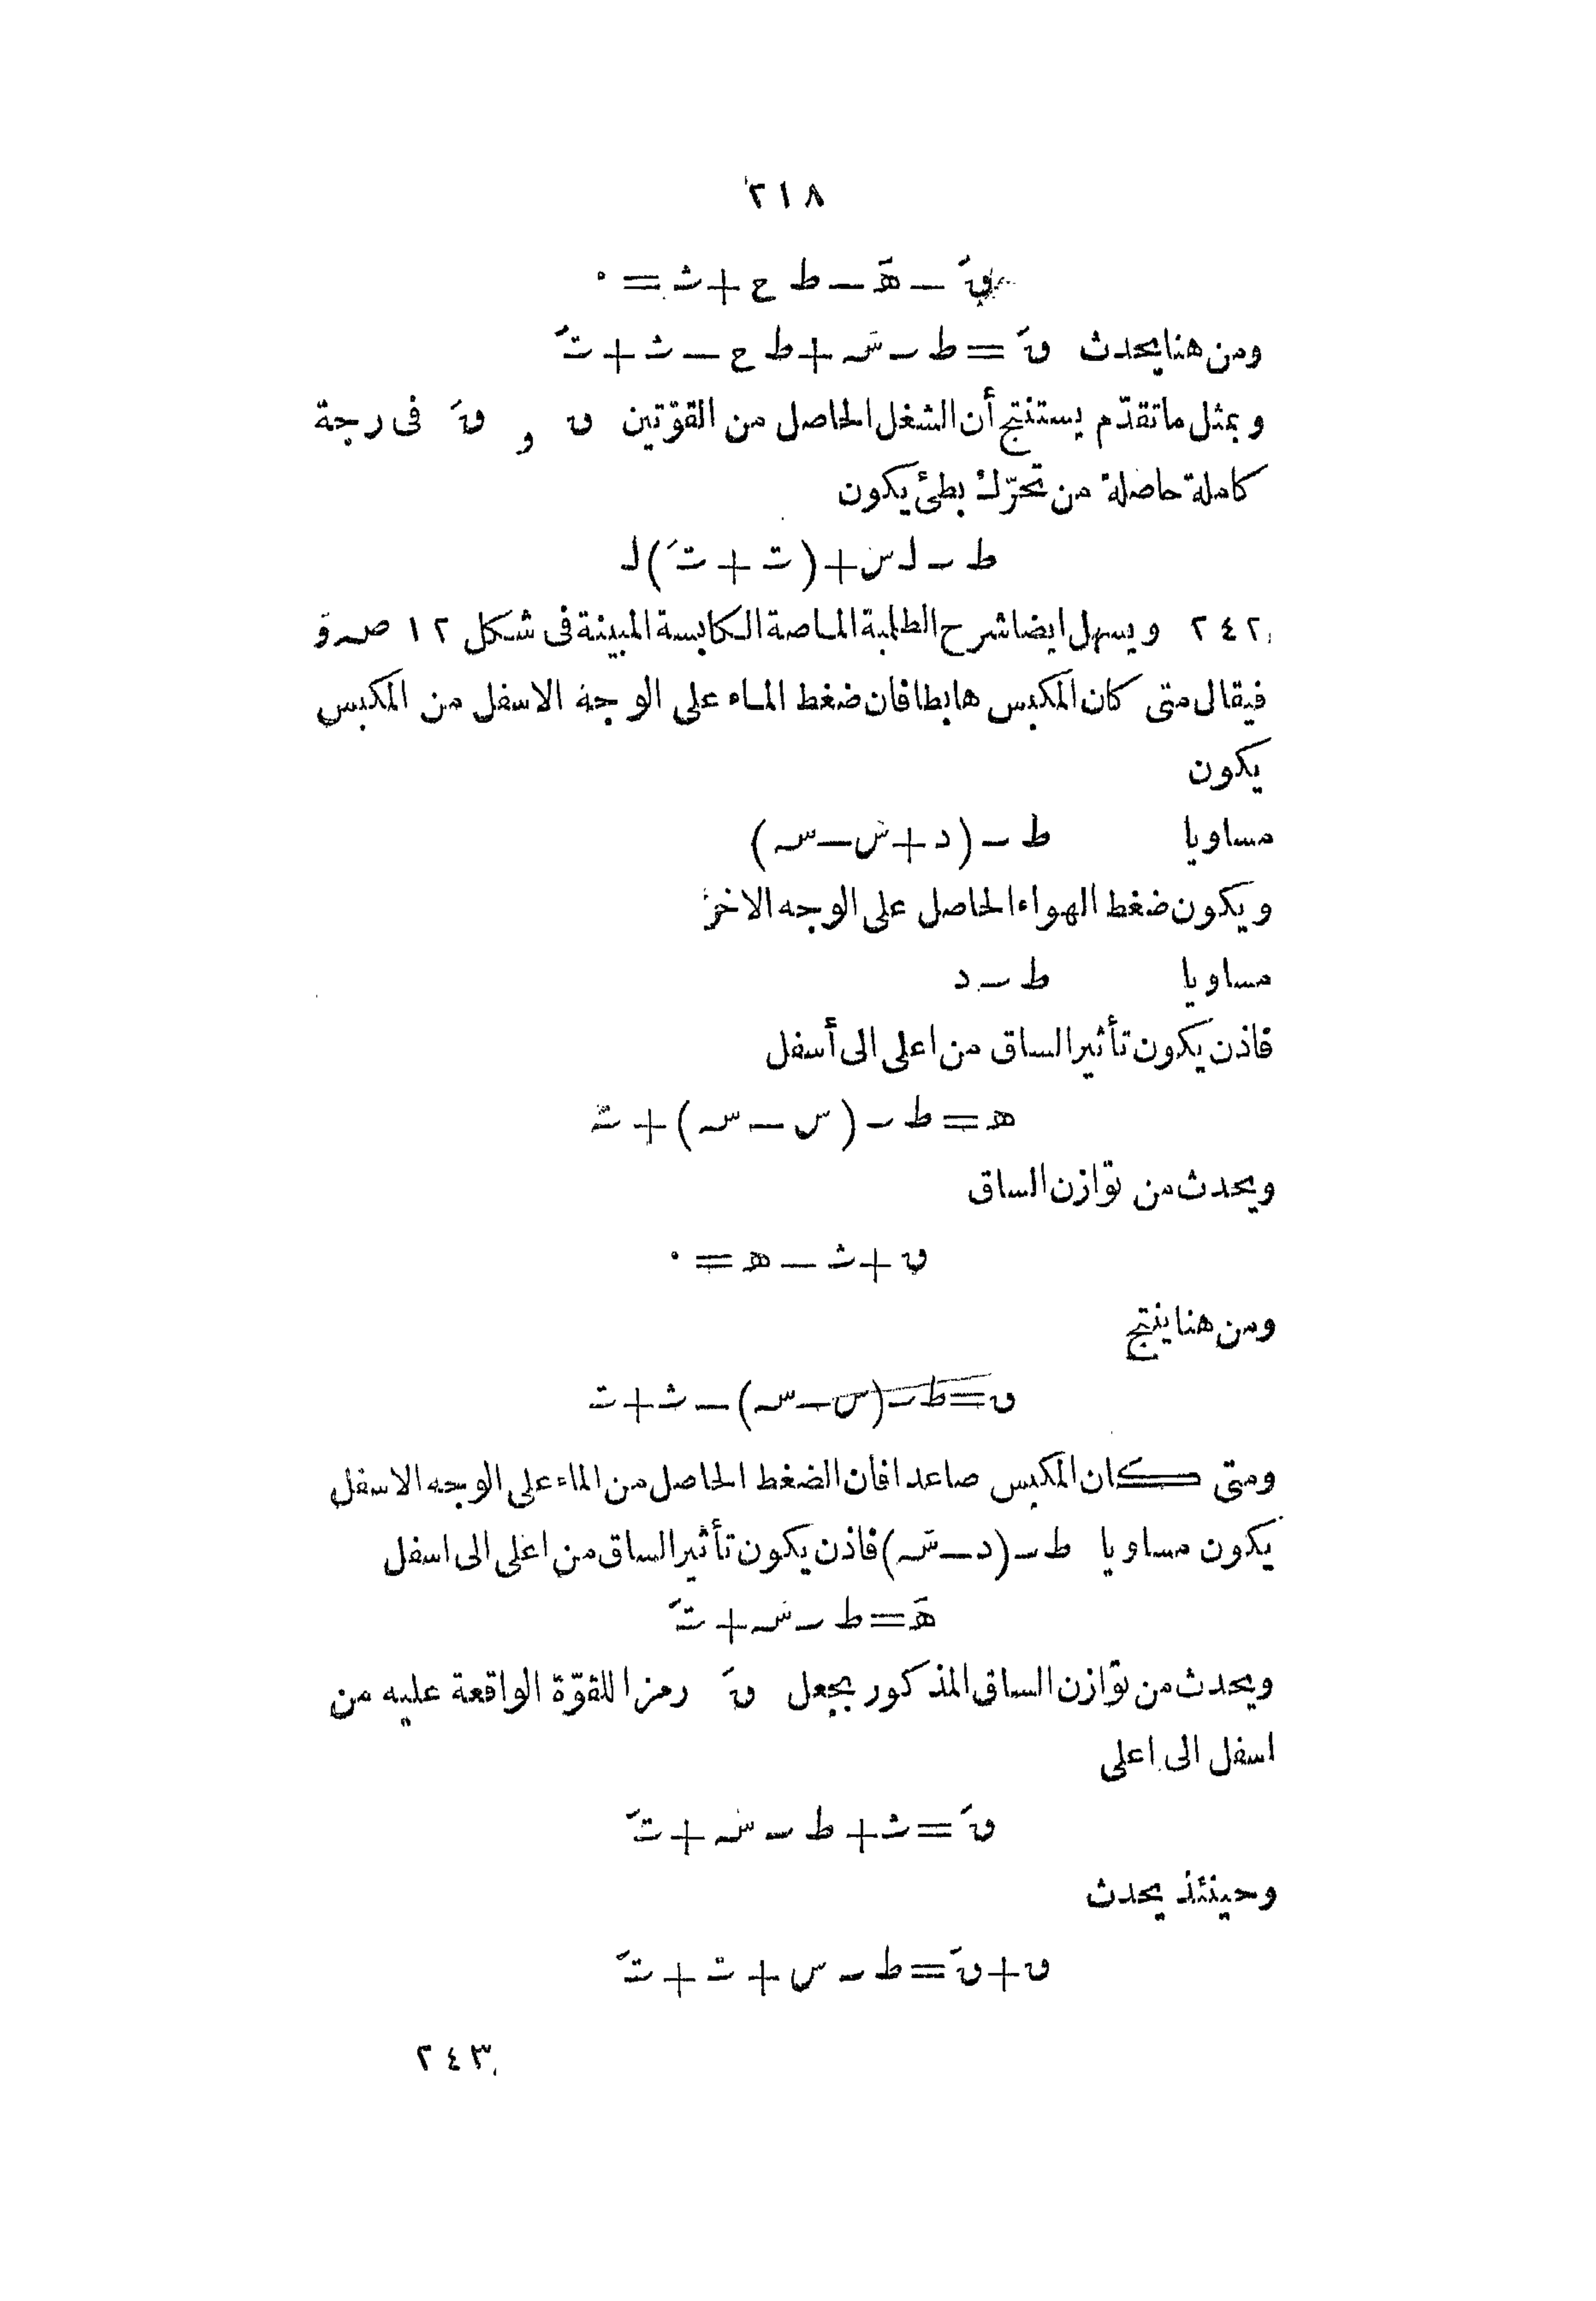 ٢١٨
ۍَ — هَ — ط ح + ث = ٠
ومن هنا يحدث ںَ = ط ــ سَہ + ط ح — ث + تَ
وبمثل ماتقدّم يستنتج أن الشغل الحاصل من القوّتين ں و ںَ فى رجة
كاملة حاصلة من تحرّك بطئ يكون
ط ــ لـ س + (ت + تَ) لـ
٢٤٢ ويسهل ايضا شرح الطلمبة الماصة الكابسة المبينة فى شكل ١٢ صہ و
فيقال متى كان المكبس هابطا فان ضغط الماء على الوجه الاسفل من المكبس
يكون
مساويا ط ــ (د + سَ — سہ)
ويكون ضغط الهواء الحاصل على الوجه الاخر
مساويا ط ــ د
فاذن يكون تأثير الساق من اعلى الى أسفل
ھ = ط ــ (س — سہ) + ت
ويحدث من توازن الساق
ں + ث — ھ = ٠
ومن هنا ينتج
ں = ط ــ (س — سہ) — ث + ت
ومتى كان المكبس صاعدا فان الضغط الحاصل من الماء على الوجه الاسفل
يكون مساويا ط ــ (د — سَہ) فاذن يكون تأثير الساق من اعلى الى اسفل
هَ = ط ــ سَہ + تَ
ويحدث من توازن الساق المذكور بجعل ںَ رمزا للقوّة الواقعة عليه من
اسفل الى اعلى
ںَ = ث + ط ــ سَہ + تَ
وحينئذ يحدث
ں + ںَ = ط ــ س + ت + تَ
٢٤٣